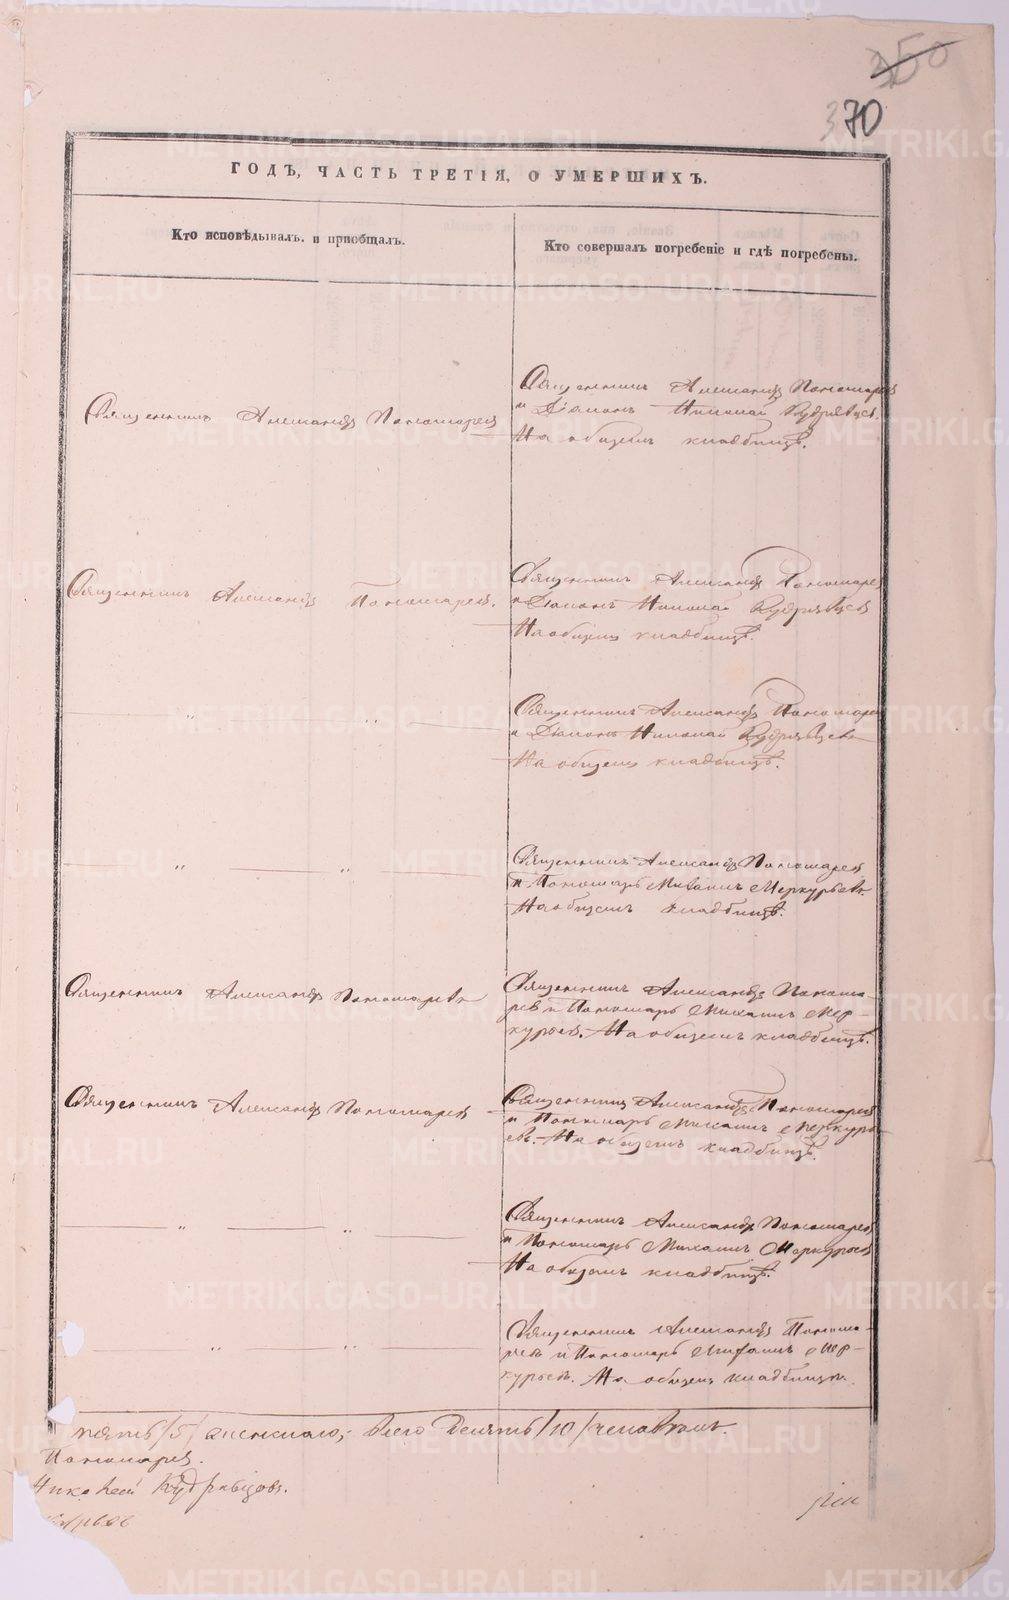 350
370
ГОДЪ, ЧАСТЬ ТРЕТІЯ, О УМЕРШИХЪ.
Кто исповѣдывалъ и пріобщалъ.
Кто совершалъ погребеніе и гдѣ погребены.
Священникъ Александръ Пономаревъ
Священникъ Александръ Пономаревъ
и Діаконъ Николай Кудрявцевъ.
На общемъ кладбищѣ.
Священникъ Александръ Пономаревъ.
Священникъ Александръ Пономаревъ
и Діаконъ Николай Кудрявцевъ
На общемъ кладбищѣ.
— " — " —
Священникъ Александръ Пономаревъ
и Діаконъ Николай Кудрявцевъ
На общемъ кладбищѣ.
— " — " —
Священникъ Александръ Пономаревъ
и Пономарь Михаилъ Меркурьевъ.
На общемъ кладбищѣ.
Священникъ Александръ Пономаревъ
Священникъ Александръ Понома-
ревъ и Пономарь Михаилъ Мер-
курьевъ. На общемъ кладбищѣ.
Священникъ Александръ Пономаревъ
Священникъ Александръ Пономаревъ
и Пономарь Михаилъ Меркурь-
евъ. На общемъ кладбищѣ.
— " — " —
Священникъ Александръ Пономаревъ
и Пономарь Михаилъ Меркурьевъ
На общемъ кладбищѣ.
— " — " —
Священникъ Александръ Понома-
ревъ и Пономарь Михаилъ Мер-
курьевъ. На общемъ кладбищѣ.
пять /5/ женскаго, Всего Десять /10/ человѣкъ.
Пономаревъ.
Николай Кудрявцовъ.
METRIKI.GASO-URAL.RU